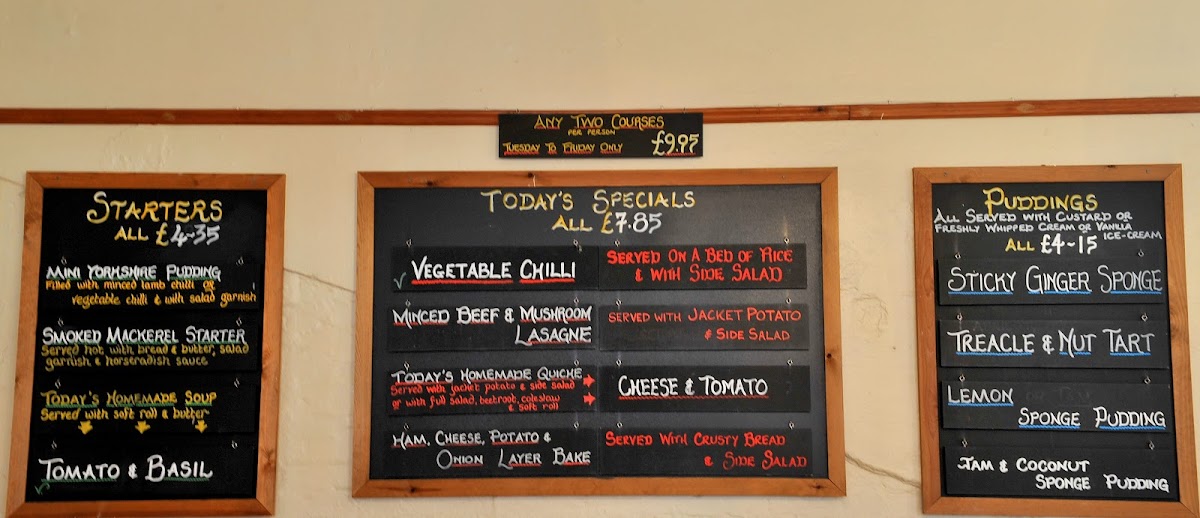 ANY TWO COURSES
PER PERSON
TUESDAY TO FRIDAY ONLY £9.95
STARTERS
ALL £4-35
MINI YORKSHIRE PUDDING
Filled with minced lamb chilli OR
vegetable chilli & with salad garnish
SMOKED MACKEREL STARTER
Served hot with bread & butter, salad
garnish & horseradish sauce
TODAY'S HOMEMADE SOUP
Served with soft roll & butter
TOMATO & BASIL
TODAY'S SPECIALS
ALL £7.85
VEGETABLE CHILLI
SERVED ON A BED OF RICE
& WITH SIDE SALAD
MINCED BEEF & MUSHROOM
LASAGNE
SERVED WITH JACKET POTATO
& SIDE SALAD
TODAY'S HOMEMADE QUICHE
Served with jacket potato & side salad
or with full salad, beetroot, coleslaw
& soft roll
CHEESE & TOMATO
HAM, CHEESE, POTATO &
ONION LAYER BAKE
SERVED WITH CRUSTY BREAD
& SIDE SALAD
PUDDINGS
ALL SERVED WITH CUSTARD OR
FRESHLY WHIPPED CREAM OR VANILLA
ICE-CREAM
ALL £4-15
STICKY GINGER SPONGE
TREACLE & NUT TART
LEMON
SPONGE PUDDING
JAM & COCONUT
SPONGE PUDDING